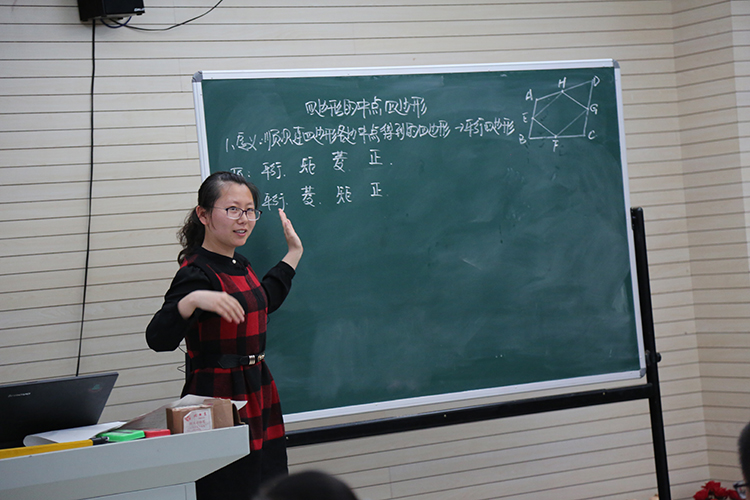 四边形的中点四边形
1.定义:顺次连四边形各边中点得到的四边形→平行四边形
原:平行. 矩 菱 正.
平行. 菱. 矩 正.
A H D
E G
B F C